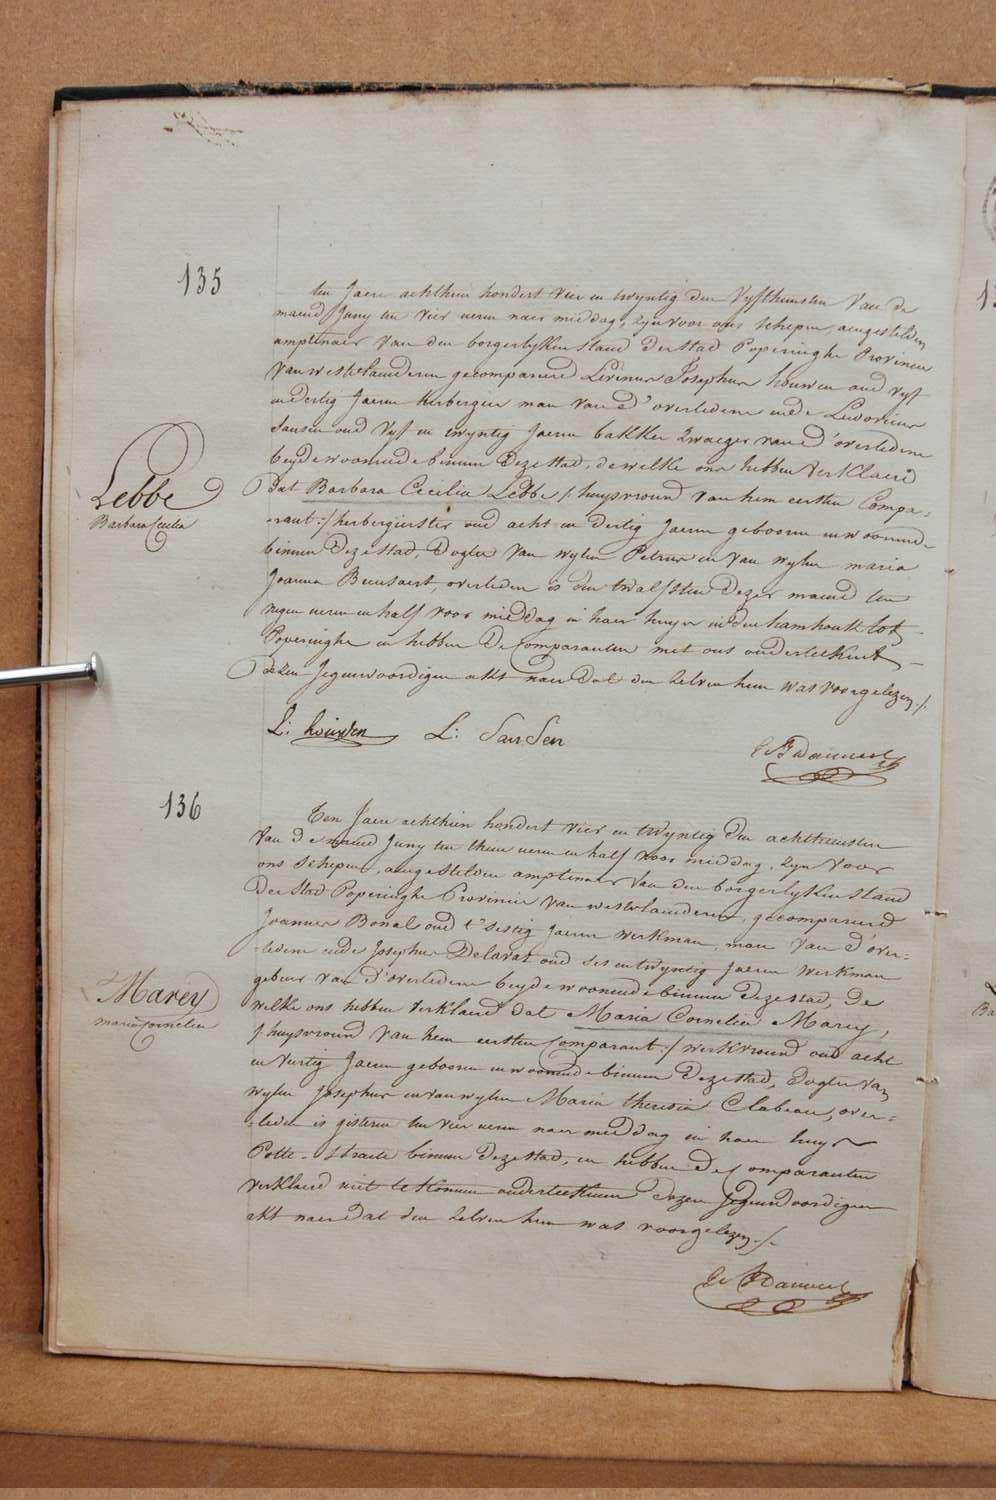 135
ten Jaere achthien hondert vier en twyntig den Vyfthiensten Van de
maend Juny ten vier uren naer middag, zyn voor ons schepen, aengestelden
amptenaer van den borgerlyken stand der stad Poperinghe Provincie
van westvlaenderen gecompareerd Livinus Josephus houwen oud vyf
en dertig Jaeren herbergier man van d'overledene ende Ludovicus
Sansen oud vyf en twyntig Jaeren bakker zwaeger van d'overledene
beyde woonende binnen deze stad, de welke ons hebben verklaerd
Lebbe
Barbara Cecilia
dat Barbara Cecilia Lebbe /:huysvrouw van hem eersten Compa-
-rant:/ herbergierster oud acht en dertig Jaeren geboren en woonende
binnen deze stad, dogter van wylen Petrus en van wylen maria
Joanna overleden is den twalfsten dezer maend ten
negen uren en half voor middag in haer huys in den hamhoek tot
Poperinghe en hebben de Comparanten met ons onderteekent
dezen Jegenwoordigen akt naer dat den zelven hun was voorgelezen ./.
L: houwen L: SanSen
136
Ten Jaere achthien hondert vier en twyntig den achthiensten
van de maend Juny ten thien uren en half voor middag, zyn voor
ons schepen, aengestelden amptenaer van den borgerlyken stand
der stad Poperinghe Provincie van westvlaenderen, gecompareerd
Joannes Bonal oud t'sestig Jaeren werkman, man van d'over-
-ledene ende Josephus Delavat oud ses en twyntig Jaeren werkman
Marey
maria Cornelia
gebeur van d'overledene beyde woonende binnen deze stad, de
welke ons hebben verklaerd dat Maria Cornelia Marey,
/:huysvrouw van hem eersten Comparant:/ werkvrouw oud acht
en veertig Jaeren geboren en woonende binnen deze stad, dogter van
wylen Josephus en van wylen Maria theresia Clabeau, over-
-leden is gisteren ten vier uren naer middag in haer huys
Potte-straete binnen deze stad, en hebben de Comparanten
verklaerd niet te konnen onderteekenen dezen Jegenwoordigen
akt naer dat den zelven hun was voorgelezen ./.